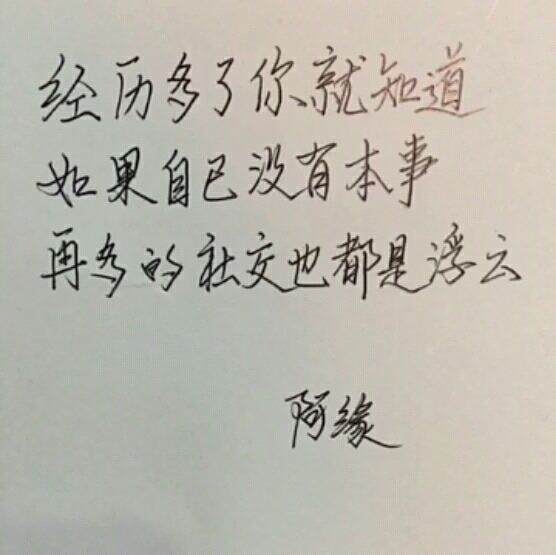 经历多了你就知道
如果自已没有本事
再多的社交也都是浮云
阿缘